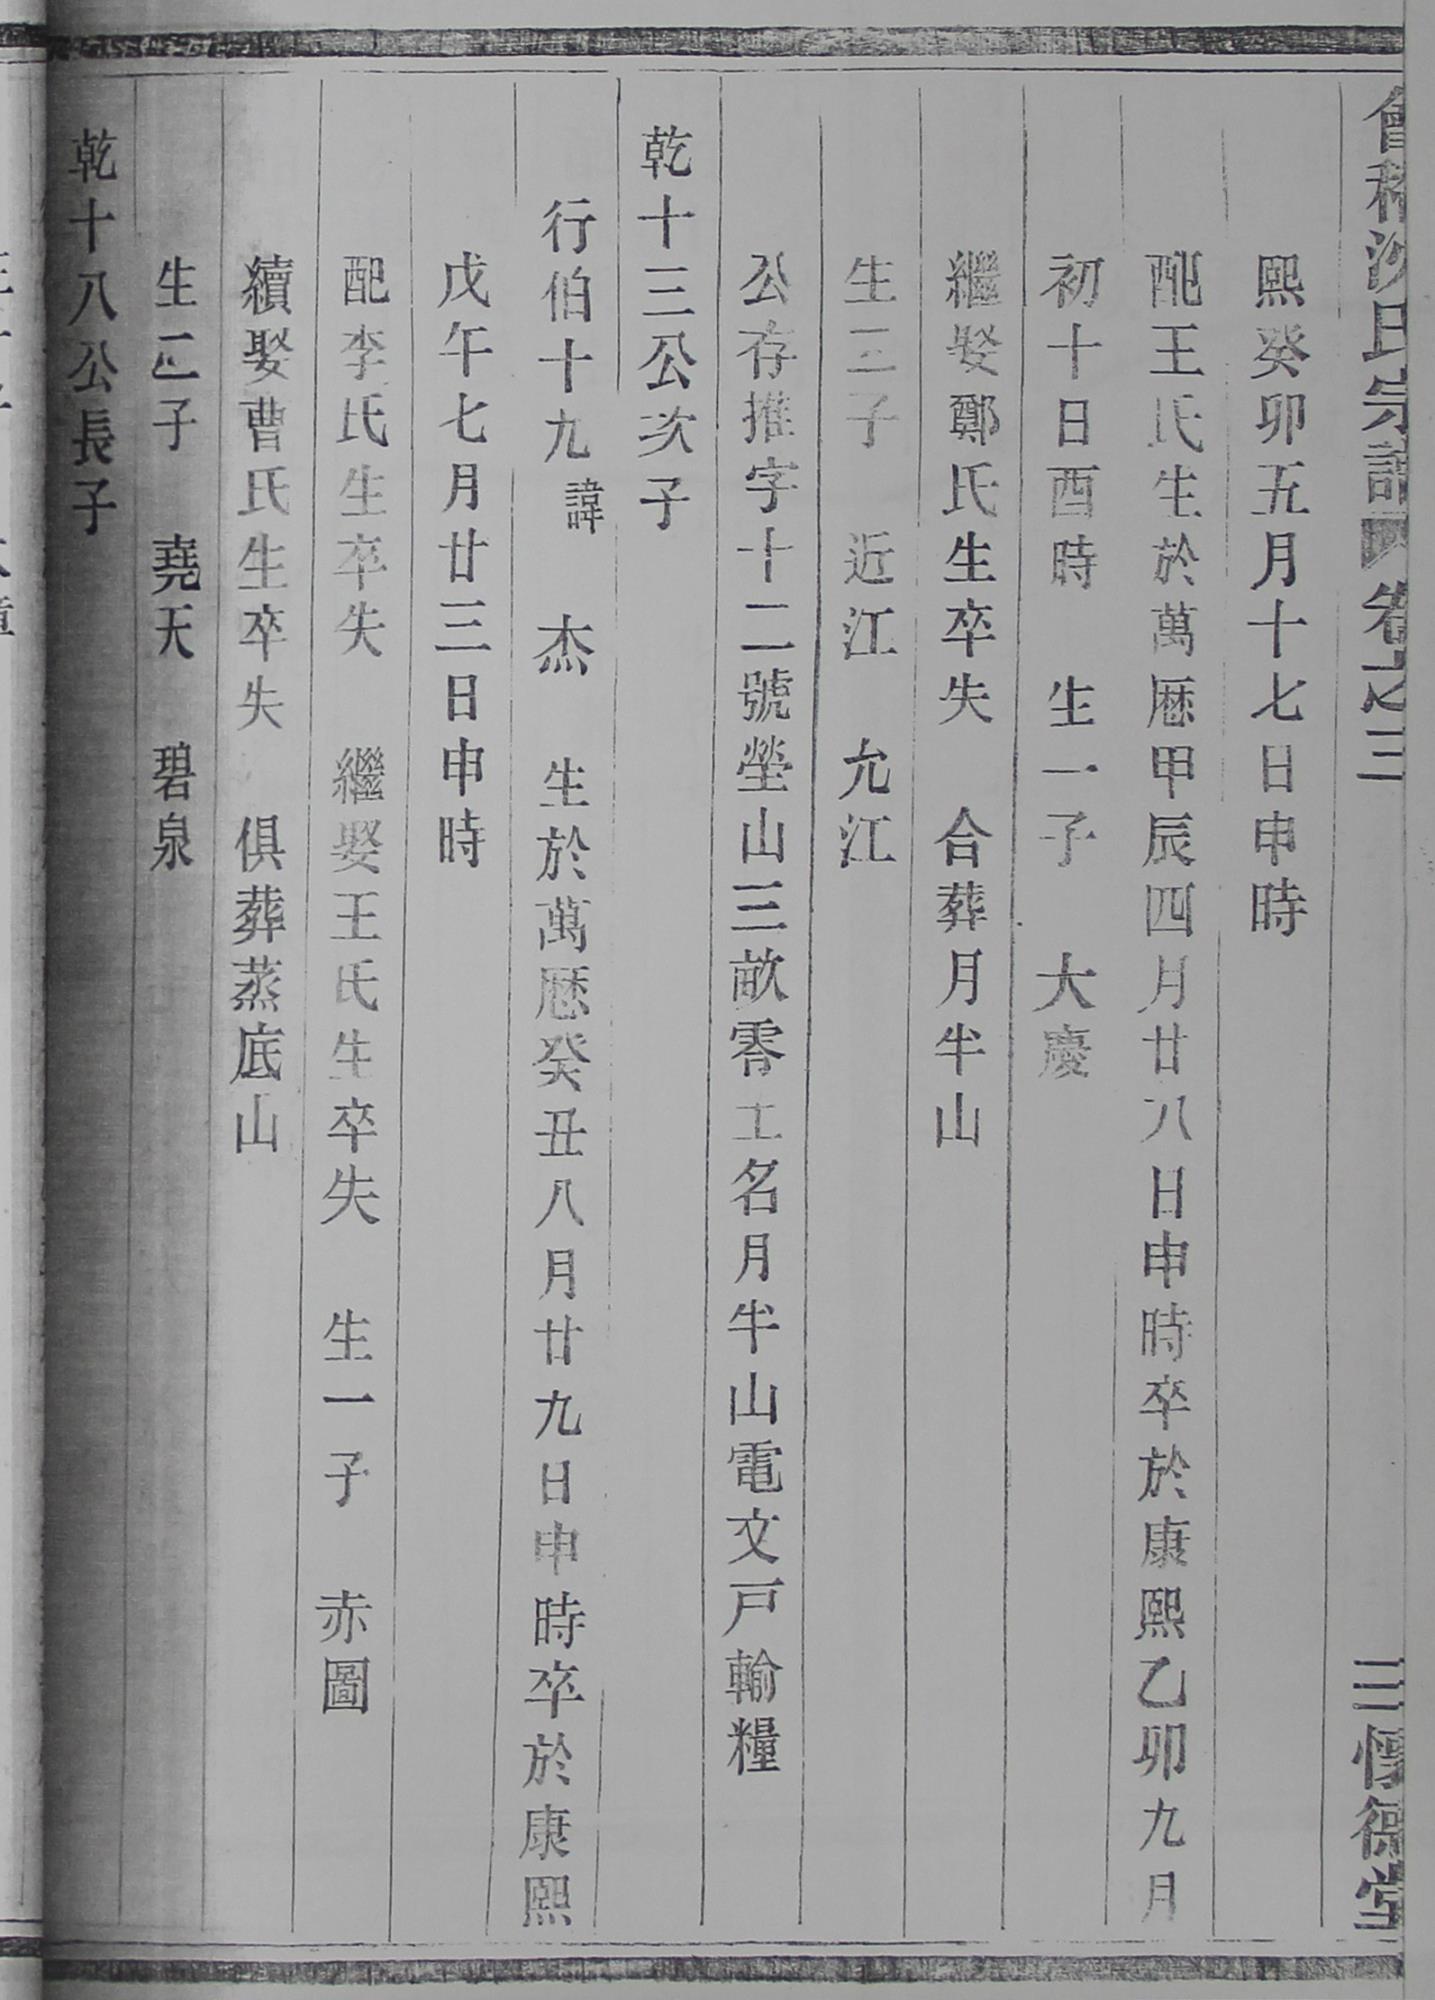 會稽沈氏宗譜 卷之三 三 懷德堂
熙癸卯五月十七日申時
配王氏生於萬厯甲辰四月廿八日申時卒於康熙乙卯九月
初十日酉時 生一子 大慶
繼娶鄭氏生卒失 合葬月半山
生二子 近江 允江
公存推字十二號塋山三畝零土名月半山電文戸輸糧
乾十三公次子
行伯十九諱 杰 生於萬厯癸丑八月廿九日申時卒於康熙
戊午七月廿三日申時
配李氏生卒失 繼娶王氏生卒失 生一子 赤圖
續娶曹氏生卒失 俱葬蒸底山
生二子 堯天 碧泉
乾十八公長子